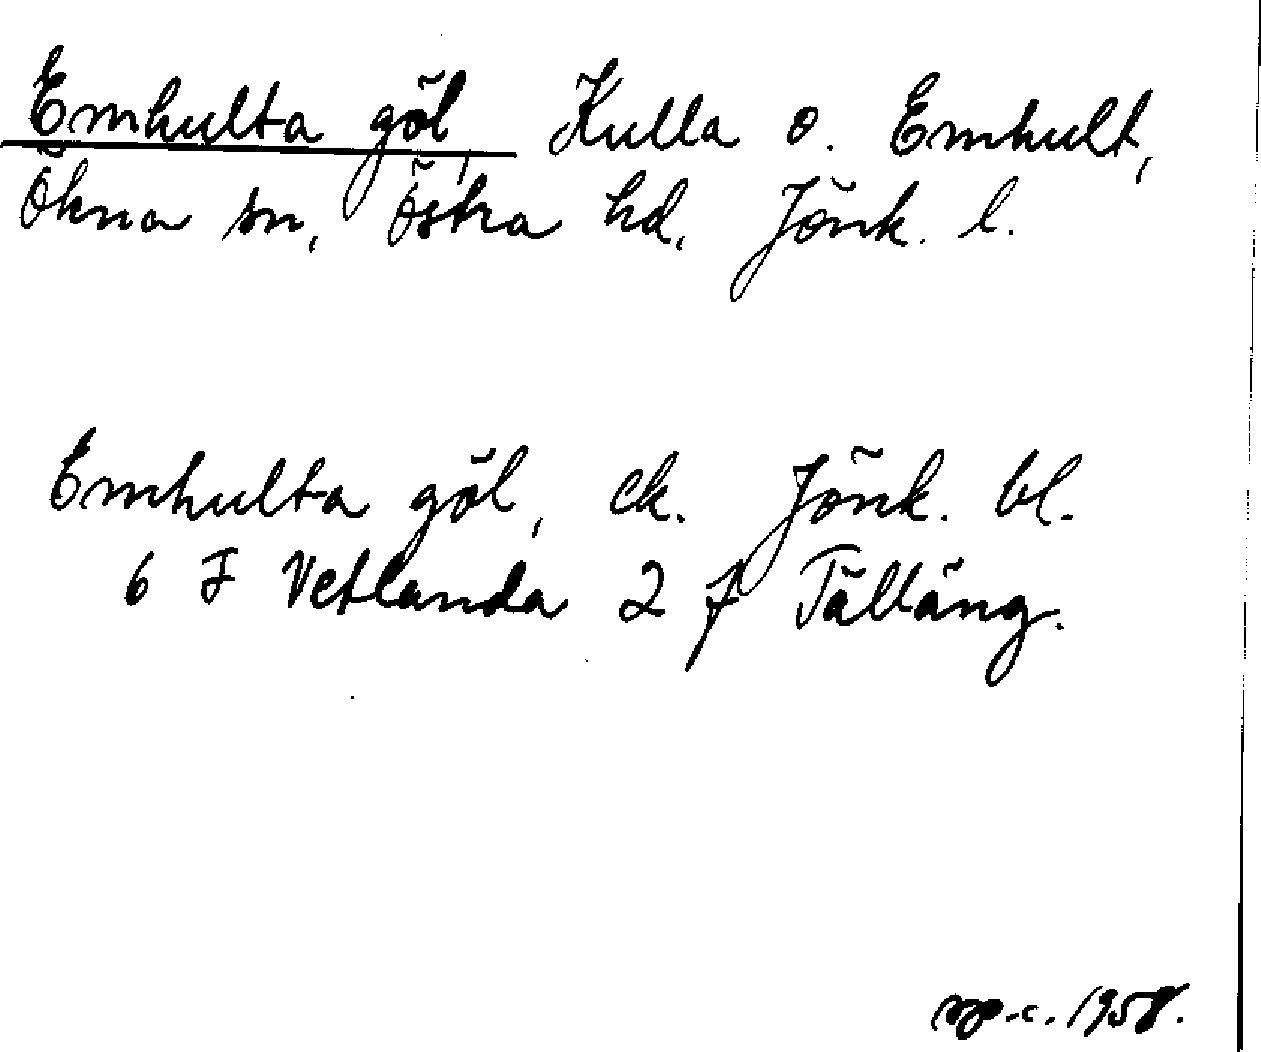 Emhulta göl, Kulla o. Emhult,
Ökna sn, Östra hd, Jönk. l.
Emhulta göl, ek. Jönk. bl.
6 F Vetlanda 2 f Tälläng.
1958.